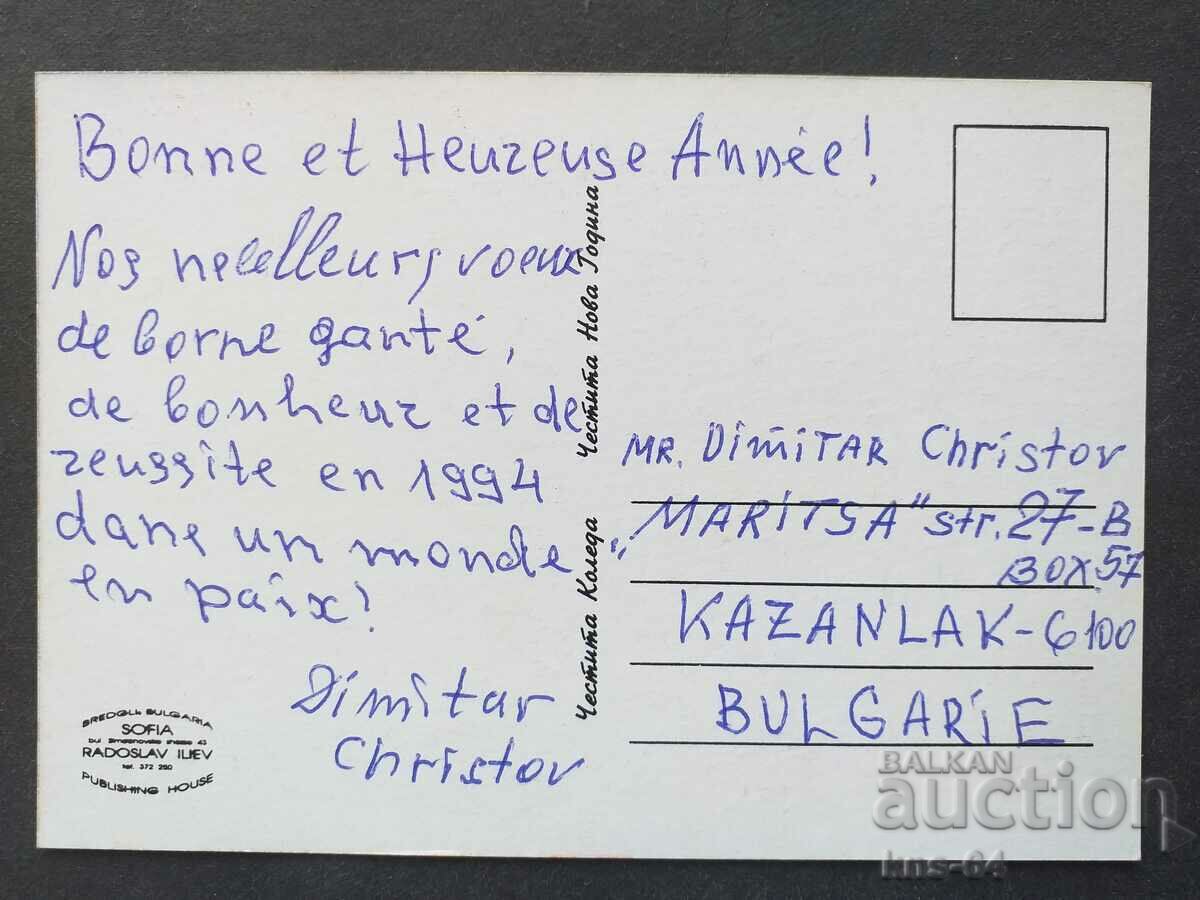 Bonne et Heureuse Année!
Nos meilleurs voeux
de bonne santé,
de bonheur et de
reussite en 1994
dans un monde
en paix!
Dimitar
Christov
Честита Коледа Честита Нова Година
MR. Dimitar Christov
"MARITSA" str. 27-B
BOX 57
KAZANLAK-6100
BULGARIE
BULGARIA
SOFIA
RADOSLAV ILIEV
tel. 372 250
PUBLISHING HOUSE
BALKAN
auction
kns-64